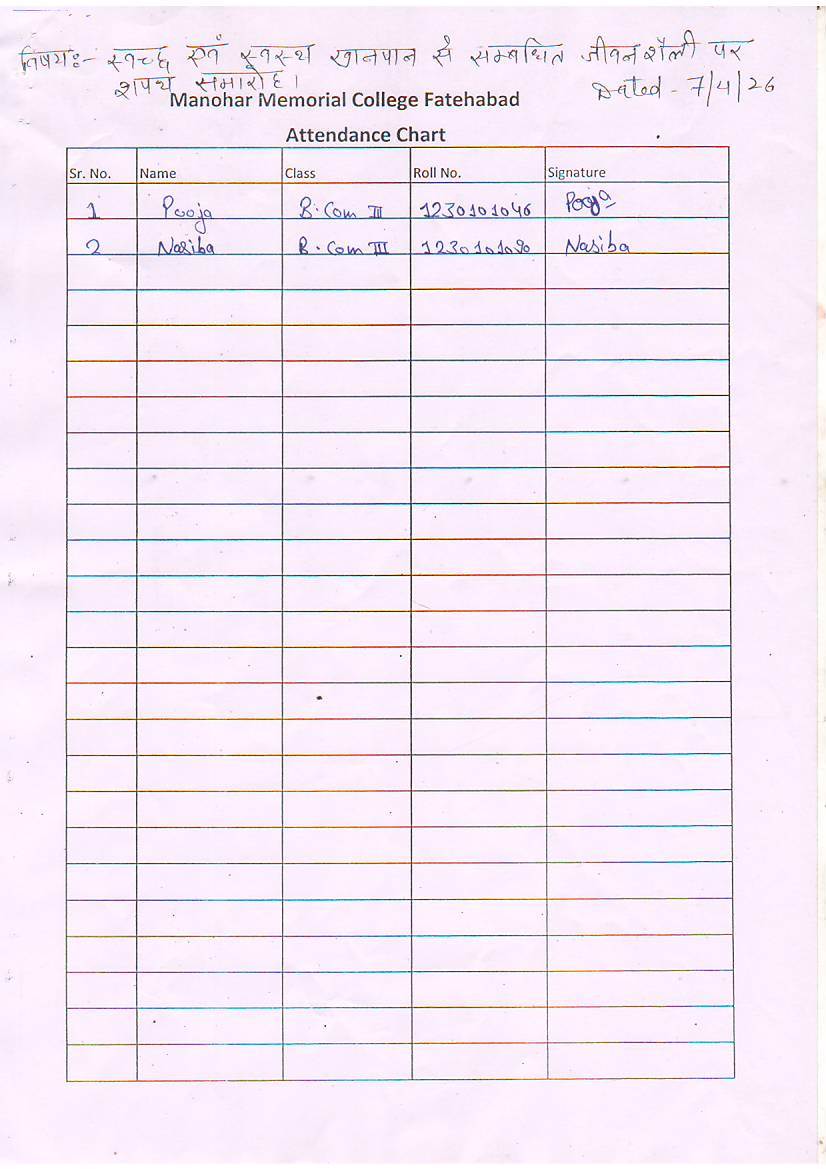 विषयः- स्वच्छ एवं स्वस्थ खानपान से सम्बधित जीवनशैली पर
शपथ समारोह।
Dated - 7/4/26
Manohar Memorial College Fatehabad
Attendance Chart
Sr. No. Name Class Roll No. Signature
1 Pooja B.Com III 1230101046 Pooja
2 Nasiba B.Com III 1230101090 Nasiba